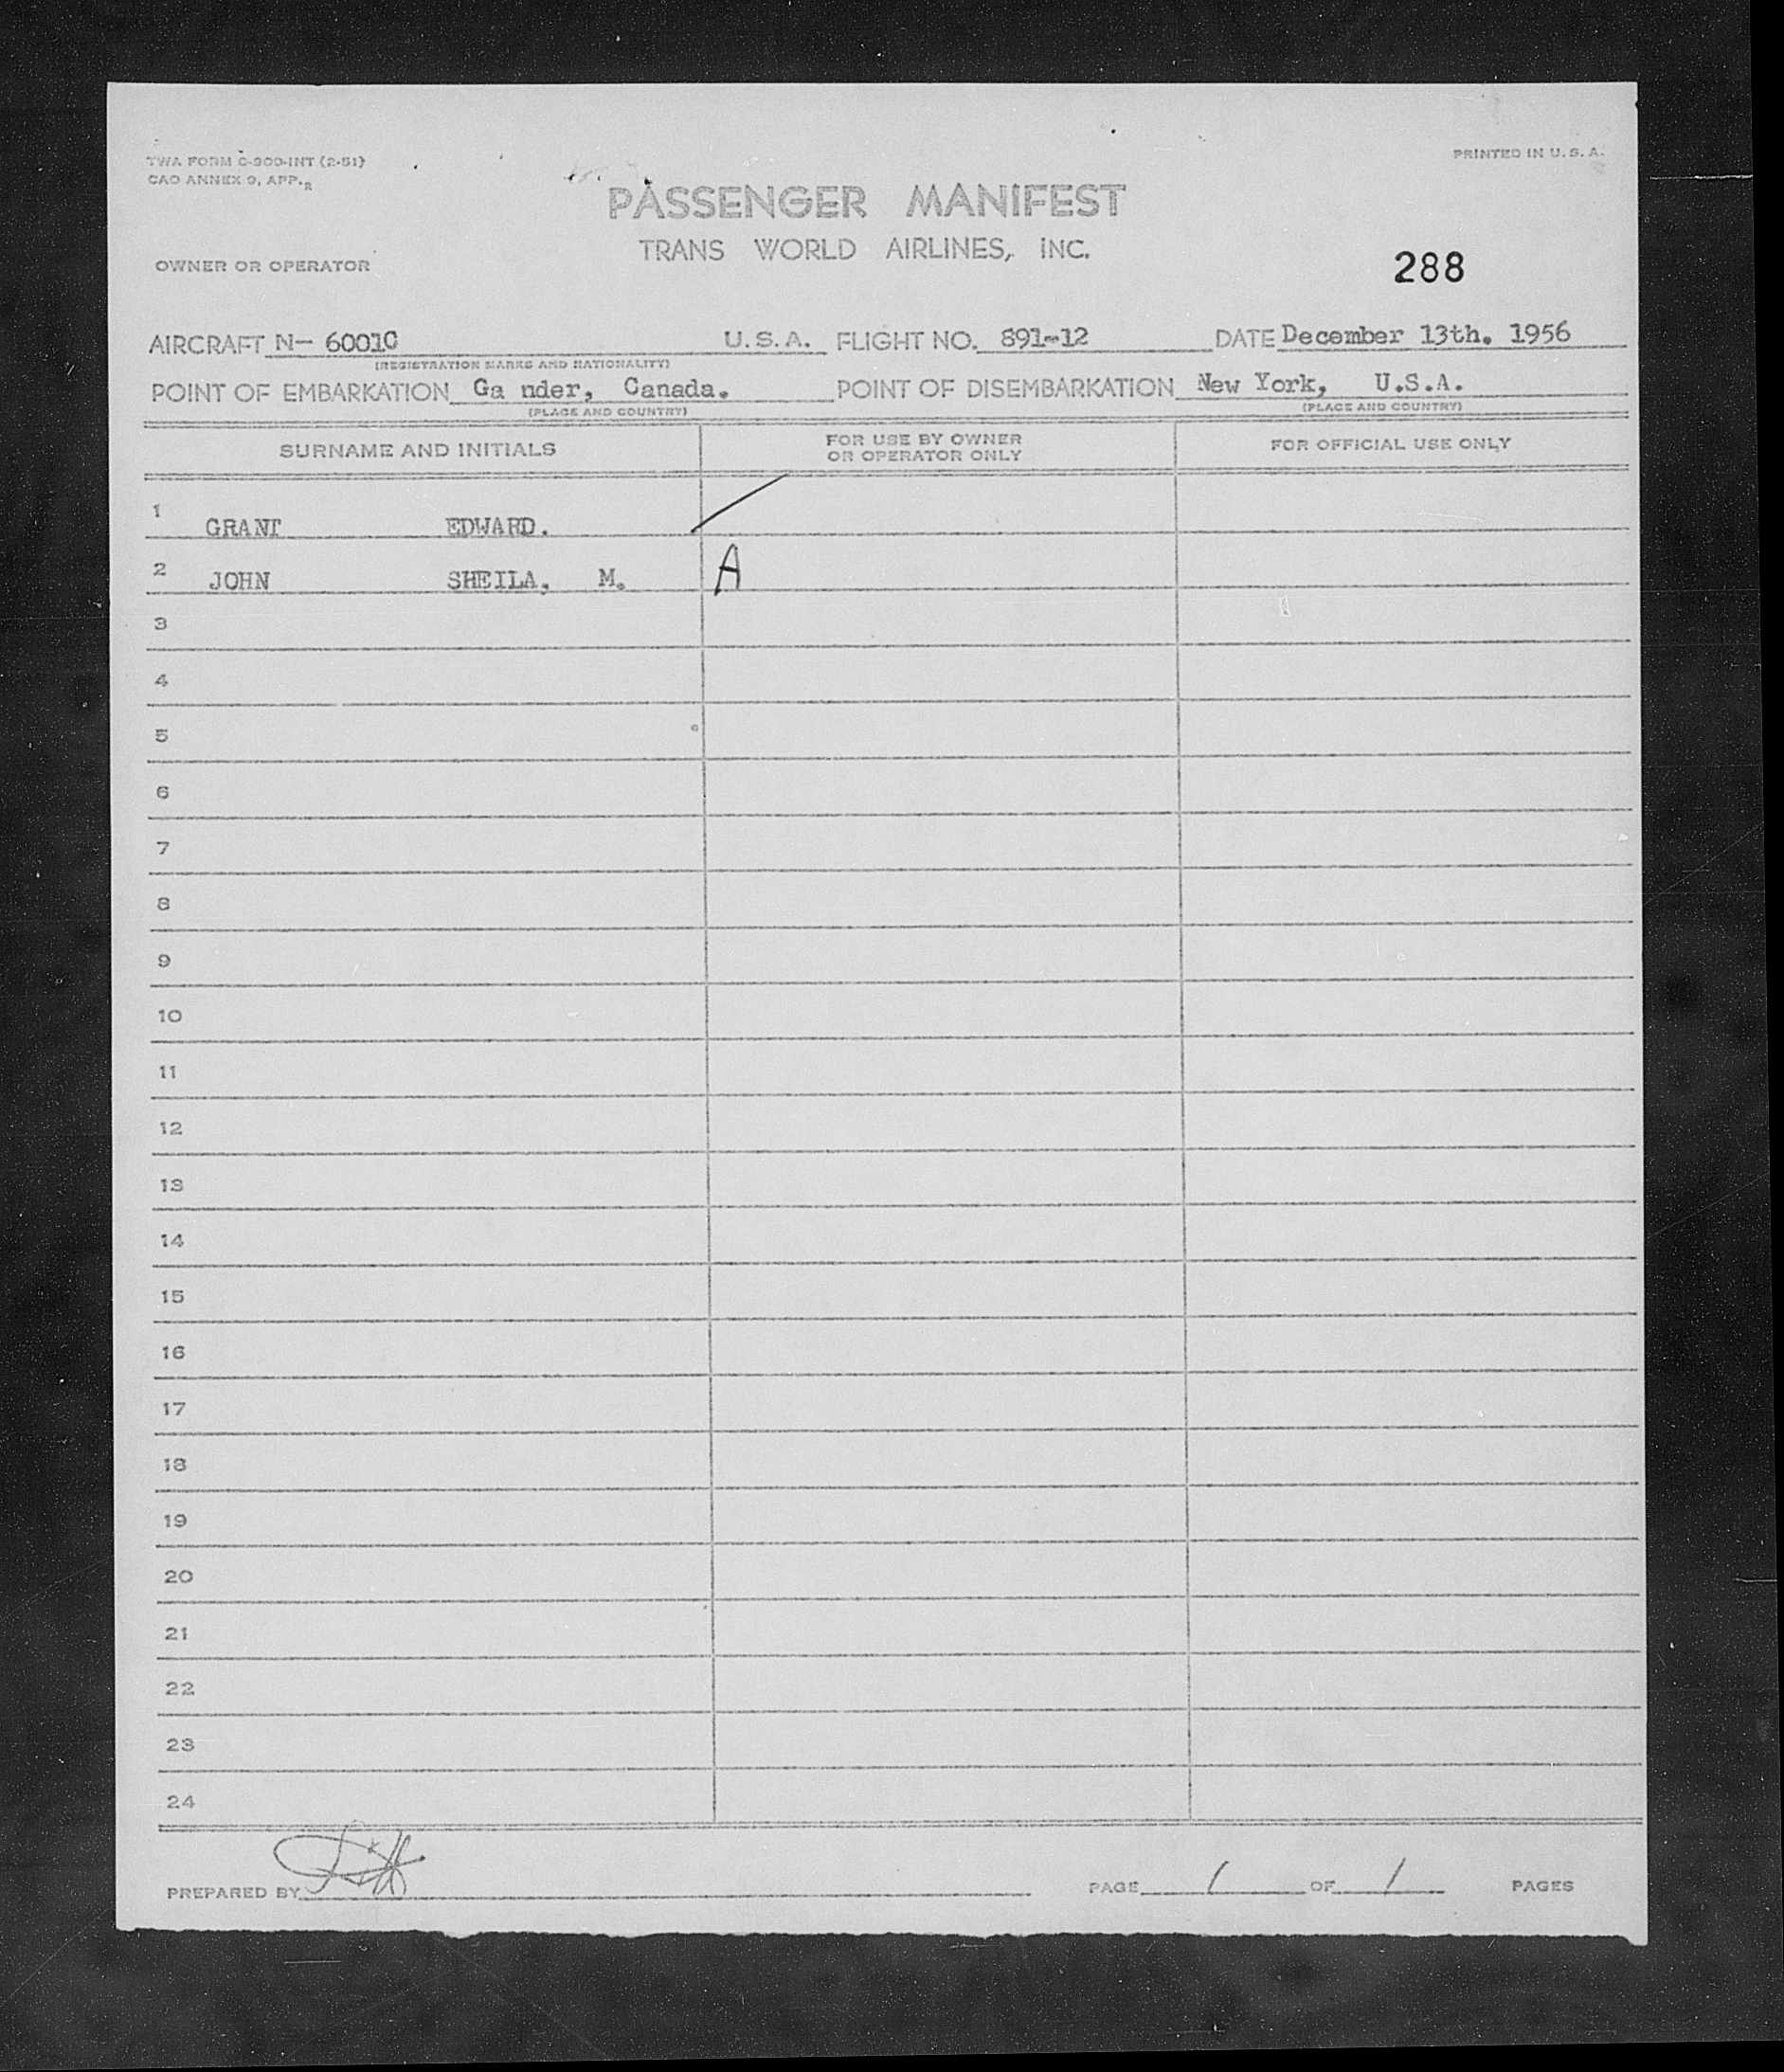 TWA FORM C-900-INT (2-51)
PRINTED IN U. S. A.
CAO ANNEX 9, APP. 2
PASSENGER MANIFEST
TRANS WORLD AIRLINES, INC.
OWNER OR OPERATOR
288
AIRCRAFT N- 6001C U. S. A. FLIGHT NO. 891-12 DATE December 13th. 1956
(REGISTRATION MARKS AND NATIONALITY)
POINT OF EMBARKATION Ga nder, Canada. POINT OF DISEMBARKATION New York, U.S.A.
(PLACE AND COUNTRY) (PLACE AND COUNTRY)
SURNAME AND INITIALS FOR USE BY OWNER OR OPERATOR ONLY FOR OFFICIAL USE ONLY
1 GRANT EDWARD.
2 JOHN SHEILA, M. A
3
4
5
6
7
8
9
10
11
12
13
14
15
16
17
18
19
20
21
22
23
24
PREPARED BY PAGE 1 OF 1 PAGES